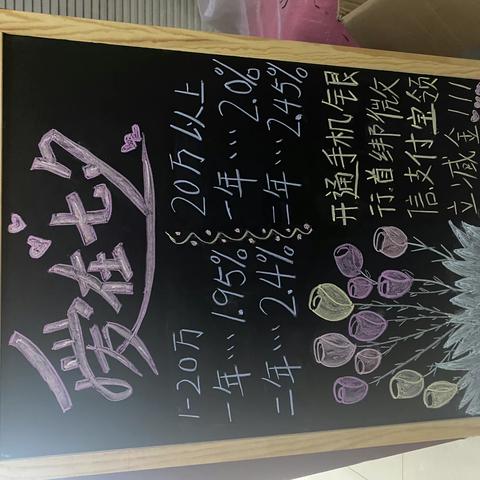 爱在七夕
1-20万 20万以上
一年…1.95% 一年…2.0%
二年…2.4% 二年…2.45%
开通手机银
行首绑微
信支付宝领
立减金!!!